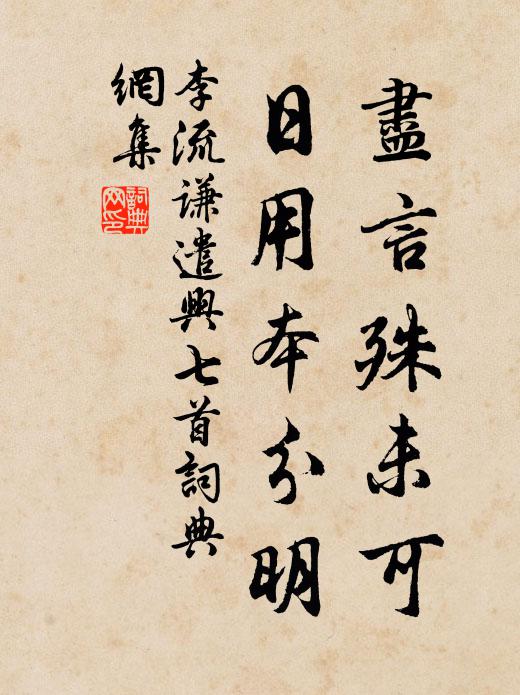 盡言殊未可
日用本分明
李流謙遣興七首詞典
網集
詞典
网印